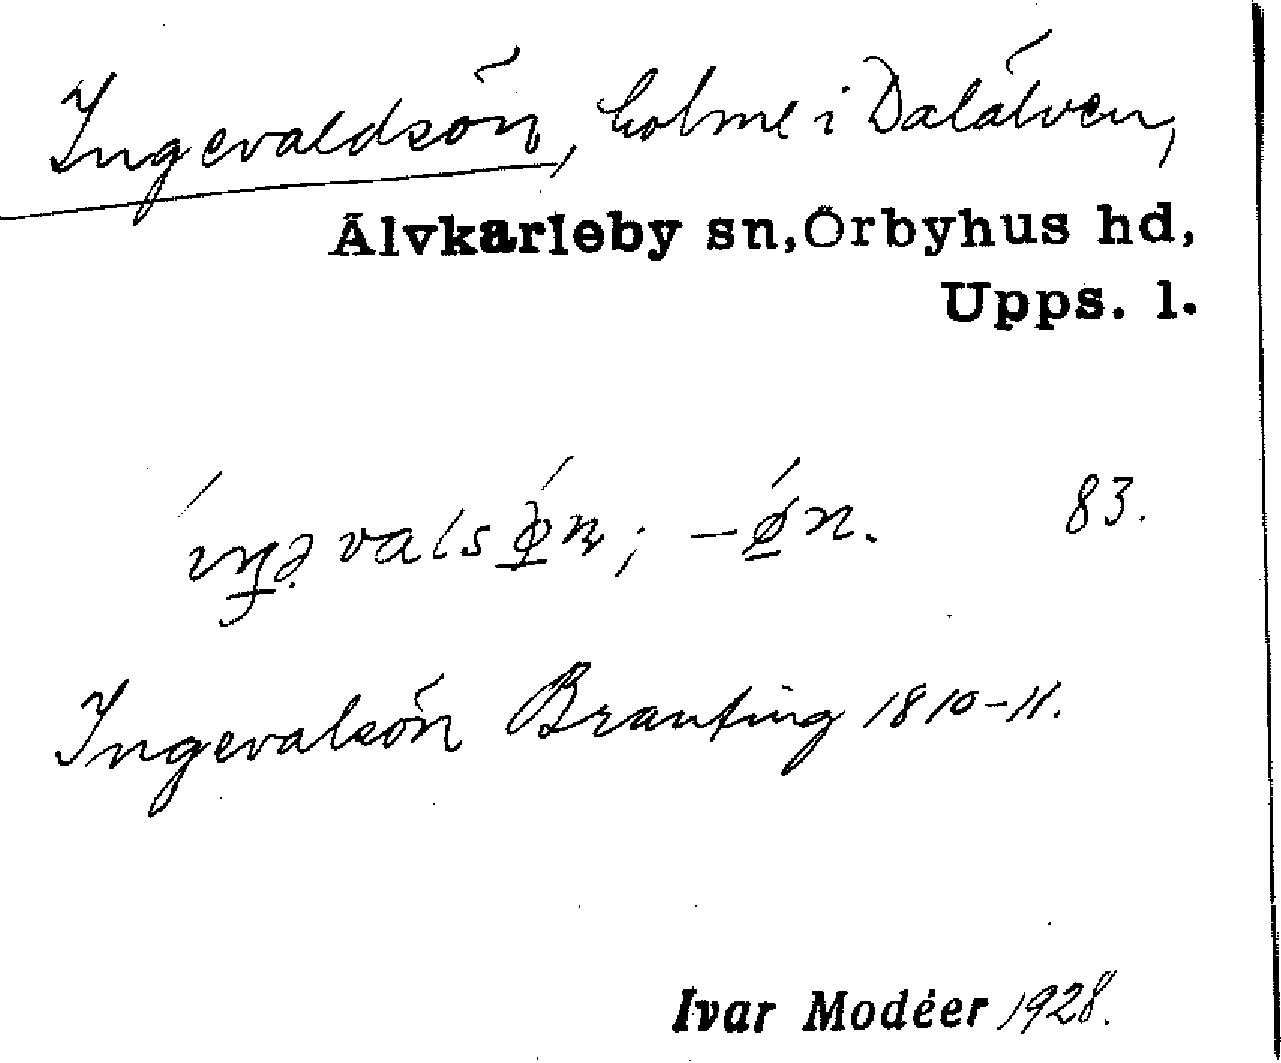 Ingevaldsön, holme i Dalälven,
Älvkarleby sn, Örbyhus hd,
Upps. l.
83.
Ingevalsön Branting 1810-11.
Ivar Modéer 1928.